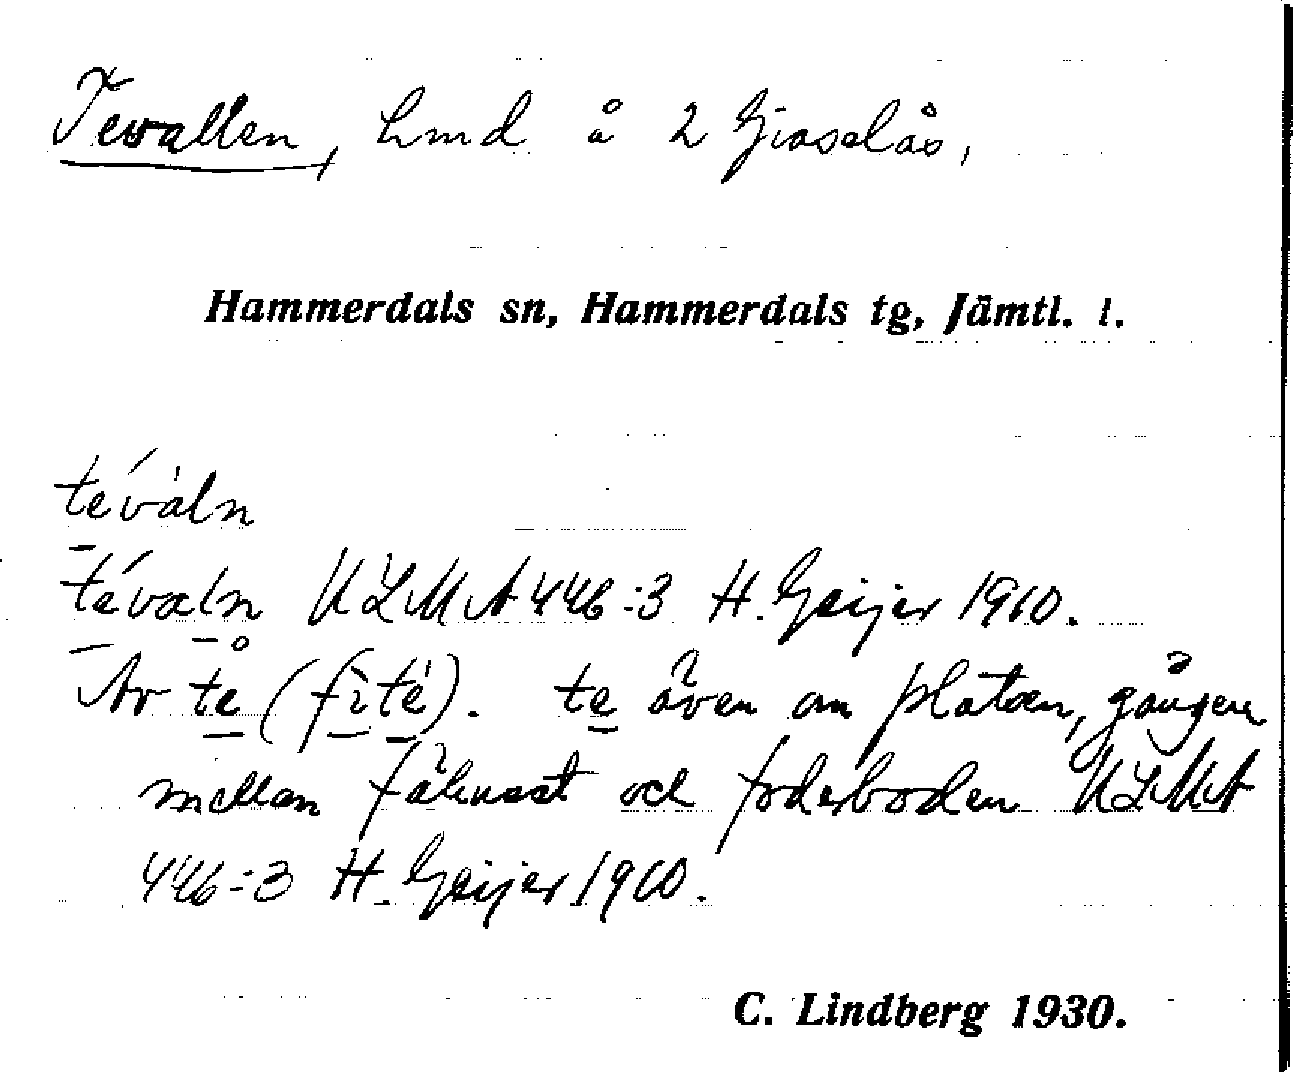 Tevallen, hmd å 2 Gisselås,
Hammerdals sn, Hammerdals tg, Jämtl. l.
tévàln
tévaln ULMA 446:3 H. Geijer 1910.
Av te (fìté). te även om platsen, gången
mellan fähuset och foderboden ULMA
446:3 H. Geijer 1910.
C. Lindberg 1930.